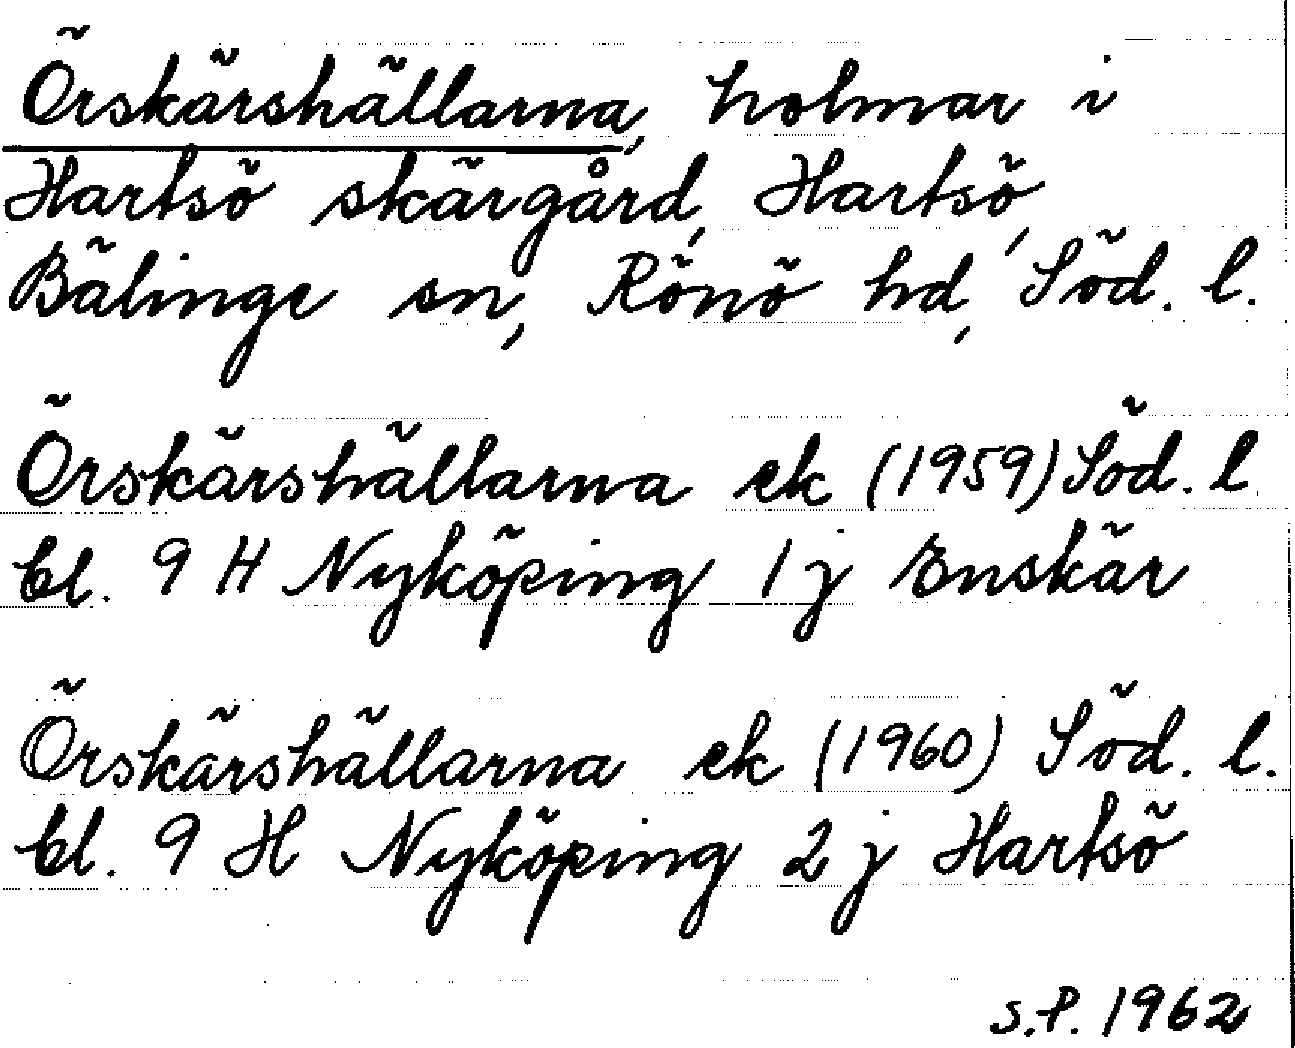 Örskärshällarna, holmar i
Hartsö skärgård, Hartsö,
Bälinge sn, Rönö hd, Söd. l.
Örskärshällarna ek (1959) Söd. l
bl. 9 H Nyköping 1 j Enskär
Örskärshällarna ek (1960) Söd. l.
bl. 9 H Nyköping 2 j Hartsö
S.P. 1962